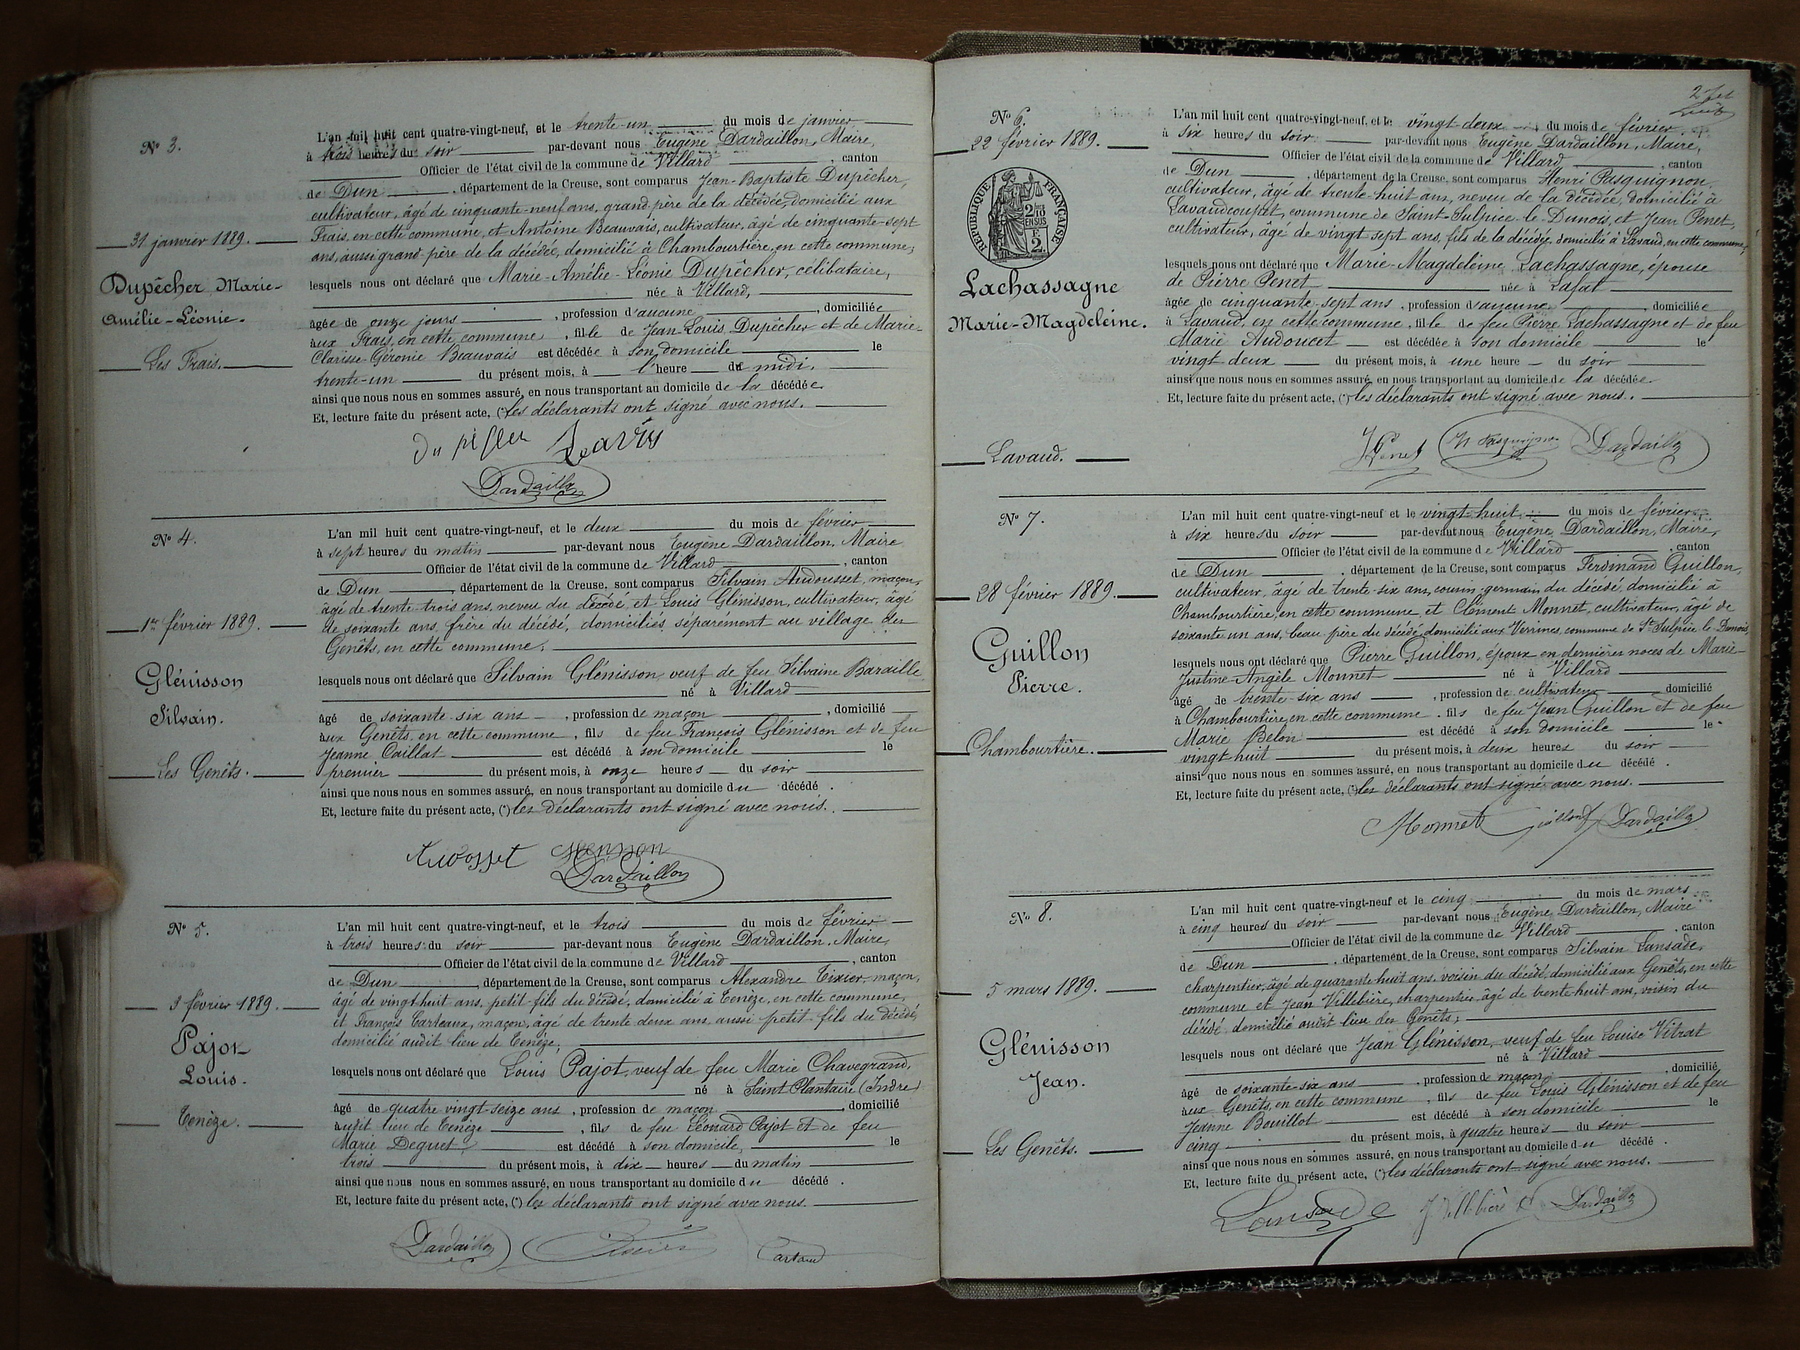 N° 3.
31 janvier 1889.
Dupêcher Marie-
Amélie-Léonie.
Les Frais.
L'an mil huit cent quatre-vingt-neuf, et le trente-un du mois de janvier
à trois heures du soir par-devant nous Eugène Dardaillon, Maire,
Officier de l'état civil de la commune de Villard, canton
de Dun, département de la Creuse, sont comparus Jean-Baptiste Dupêcher,
cultivateur, âgé de cinquante-neuf ans, grand-père de la décédée, domicilié aux
Frais, en cette commune, et Antoine Beauvais, cultivateur, âgé de cinquante-sept
ans, aussi grand-père de la décédée, domicilié à Chambourtière, en cette commune;
lesquels nous ont déclaré que Marie-Amélie-Léonie Dupêcher, célibataire,
née à Villard,
âgée de onze jours, profession d'aucune, domiciliée
aux Frais, en cette commune, fille de Jean-Louis Dupêcher et de Marie-
Clarisse-Géronie Beauvais est décédée à son domicile le
trente-un du présent mois, à l'heure de midi,
ainsi que nous nous en sommes assuré, en nous transportant au domicile de la décédée.
Et, lecture faite du présent acte, (*) les déclarants ont signé avec nous.
Dardaillon
N° 4.
1er février 1889.
Glénisson
Silvain.
Les Genêts.
L'an mil huit cent quatre-vingt-neuf, et le deux du mois de février
à sept heures du matin par-devant nous Eugène Dardaillon, Maire
Officier de l'état civil de la commune de Villard, canton
de Dun, département de la Creuse, sont comparus Silvain Audousset, maçon,
âgé de trente-trois ans, neveu du décédé et Louis Glénisson, cultivateur, âgé
de soixante ans, frère du décédé, domiciliés séparément au village des
Genêts, en cette commune;
lesquels nous ont déclaré que Silvain Glénisson, veuf de feu Silvaine Baraille
né à Villard
âgé de soixante-six ans, profession de maçon, domicilié
aux Genêts, en cette commune, fils de feu François Glénisson et de feu
Jeanne Caillat est décédé à son domicile le
premier du présent mois, à onze heures du soir
ainsi que nous nous en sommes assuré, en nous transportant au domicile du décédé.
Et, lecture faite du présent acte, (*) les déclarants ont signé avec nous.
Dardaillon
N° 5.
3 février 1889.
Pajot
Louis.
Tenèze.
L'an mil huit cent quatre-vingt-neuf, et le trois du mois de février
à trois heures du soir par-devant nous Eugène Dardaillon, Maire,
Officier de l'état civil de la commune de Villard, canton
de Dun, département de la Creuse, sont comparus Alexandre Tixier, maçon,
âgé de vingt-huit ans, petit-fils du décédé, domicilié à Tenèze, en cette commune,
et François Carteaux, maçon, âgé de trente deux ans, aussi petit-fils du décédé,
domicilié audit lieu de Tenèze;
lesquels nous ont déclaré que Louis Pajot, veuf de feu Marie Chavegrand,
né à Saint Plantaire (Indre)
âgé de quatre-vingt-seize ans, profession de maçon, domicilié
audit lieu de Tenèze, fils de feu Léonard Pajot et de feu
Marie Deguet est décédé à son domicile, le
trois du présent mois, à dix heures du matin
ainsi que nous nous en sommes assuré, en nous transportant au domicile du décédé.
Et, lecture faite du présent acte, (*) les déclarants ont signé avec nous.
Dardaillon
N° 6.
22 février 1889.
RÉPUBLIQUE FRANÇAISE
2/10 EN SUS
F 2
Lachassagne
Marie-Magdeleine.
Lavaud.
L'an mil huit cent quatre-vingt-neuf, et le vingt deux du mois de février
à six heures du soir par-devant nous Eugène Dardaillon, Maire,
Officier de l'état civil de la commune de Villard, canton
de Dun, département de la Creuse, sont comparus Henri Pasquignon,
cultivateur, âgé de trente-huit ans, neveu de la décédée, domicilié à
Lavaudcoupet, commune de Saint-Sulpice-le-Dunois, et Jean Penet,
cultivateur, âgé de vingt sept ans, fils de la décédée, domicilié à Lavaud, en cette commune;
lesquels nous ont déclaré que Marie-Magdeleine Lachassagne, épouse
de Pierre Penet née à Lafat
âgée de cinquante-sept ans, profession d'aucune, domiciliée
à Lavaud, en cette commune, fille de feu Pierre Lachassagne et de feu
Marie Audoucet est décédée à son domicile le
vingt deux du présent mois, à une heure du soir
ainsi que nous nous en sommes assuré, en nous transportant au domicile de la décédée
Et, lecture faite du présent acte, (*) les déclarants ont signé avec nous.
Penet H Pasquignon Dardaillon
N° 7.
28 février 1889.
Guillon
Pierre.
Chambourtière.
L'an mil huit cent quatre-vingt-neuf et le vingt huit du mois de février
à six heures du soir par-devant nous Eugène Dardaillon, Maire,
Officier de l'état civil de la commune de Villard, canton
de Dun, département de la Creuse, sont comparus Ferdinand Guillon,
cultivateur, âgé de trente-six ans, cousin-germain du décédé, domicilié à
Chambourtière, en cette commune et Clément Monnet, cultivateur, âgé de
soixante-un ans, beau-père du décédé, domicilié aux Verrines, commune de St Sulpice le Dunois,
lesquels nous ont déclaré que Pierre Guillon, époux en dernières noces de Marie-
Justine-Angèle Monnet né à Villard
âgé de trente-six ans, profession de cultivateur domicilié
à Chambourtière, en cette commune, fils de feu Jean Guillon et de feu
Marie Belon est décédé à son domicile le
vingt huit du présent mois, à deux heures du soir
ainsi que nous nous en sommes assuré, en nous transportant au domicile du décédé.
Et, lecture faite du présent acte, (*) les déclarants ont signé avec nous.
Monnet Guillon Dardaillon
N° 8.
5 mars 1889.
Glénisson
Jean.
Les Genêts.
L'an mil huit cent quatre-vingt-neuf et le cinq du mois de mars
à cinq heures du soir par-devant nous Eugène Dardaillon, Maire
Officier de l'état civil de la commune de Villard, canton
de Dun, département de la Creuse, sont comparus Silvain Lansade,
charpentier, âgé de quarante-huit ans, voisin du décédé, domicilié aux Genêts, en cette
commune et Jean Villebière, charpentier, âgé de trente huit ans, voisin du
décédé domicilié audit lieu des Genêts;
lesquels nous ont déclaré que Jean Glénisson, veuf de feu Louise Vitrat
né à Villard
âgé de soixante-six ans, profession de maçon, domicilié
aux Genêts, en cette commune, fils de feu Louis Glénisson et de feu
Jeanne Bouillot est décédé à son domicile le
cinq du présent mois, à quatre heures du soir
ainsi que nous nous en sommes assuré, en nous transportant au domicile du décédé.
Et, lecture faite du présent acte, (*) les déclarants ont signé avec nous.
Lansade Villebière Dardaillon